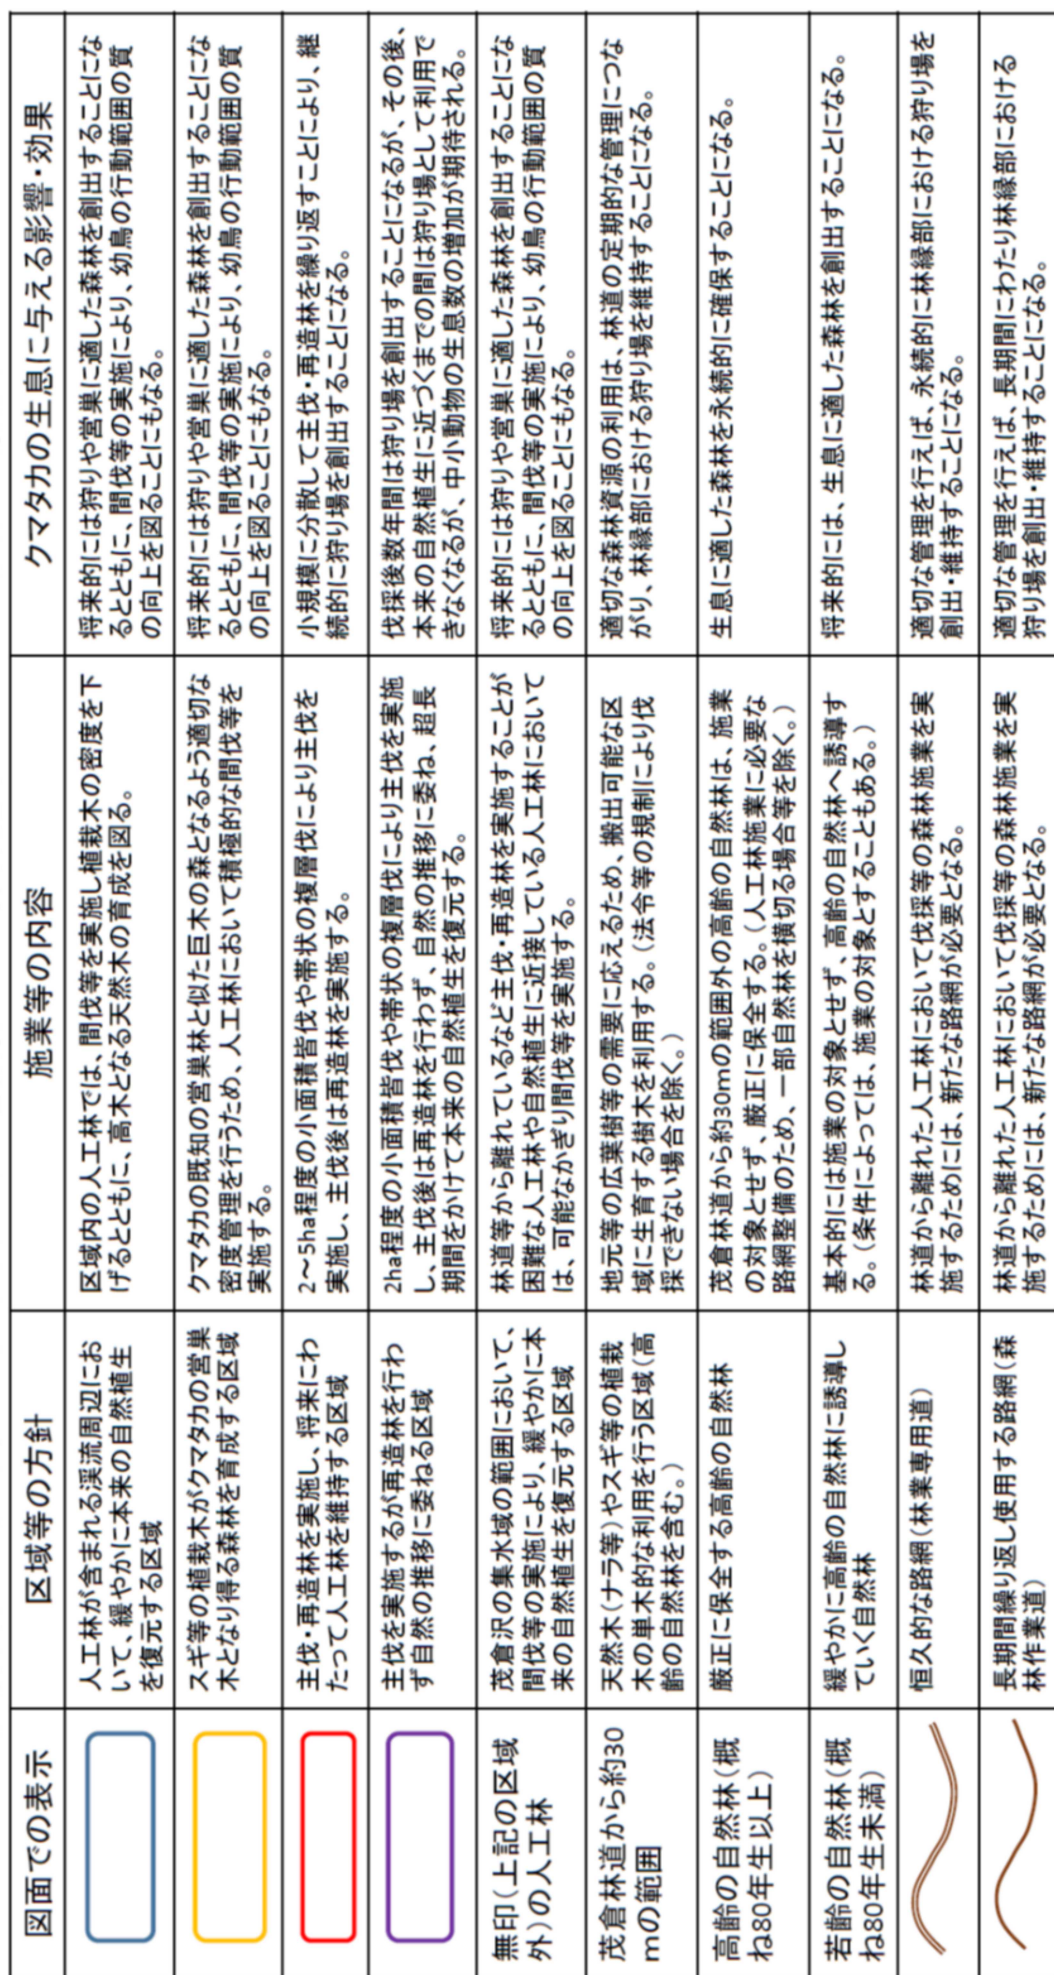 図面での表示
区域等の方針
施業等の内容
クマタカの生息に与える影響・効果
人工林が含まれる渓流周辺にお
いて、緩やかに本来の自然植生
を復元する区域
区域内の人工林では、間伐等を実施し植栽木の密度を下
げるとともに、高木となる天然木の育成を図る。
将来的には狩りや営巣に適した森林を創出することにな
るとともに、間伐等の実施により、幼鳥の行動範囲の質
の向上を図ることにもなる。
スギ等の植栽木がクマタカの営巣
木となり得る森林を育成する区域
クマタカの既知の営巣林と似た巨木の森となるよう適切な
密度管理を行うため、人工林において積極的な間伐等を
実施する。
将来的には狩りや営巣に適した森林を創出することにな
るとともに、間伐等の実施により、幼鳥の行動範囲の質
の向上を図ることにもなる。
主伐・再造林を実施し、将来にわ
たって人工林を維持する区域
2～5ha程度の小面積皆伐や帯状の複層伐により主伐を
実施し、主伐後は再造林を実施する。
小規模に分散して主伐・再造林を繰り返すことにより、継
続的に狩り場を創出することになる。
主伐を実施するが再造林を行わ
ず自然の推移に委ねる区域
2ha程度の小面積皆伐や帯状の複層伐により主伐を実施
し、主伐後は再造林を行わず、自然の推移に委ね、超長
期間をかけて本来の自然植生を復元する。
伐採後数年間は狩り場を創出することになるが、その後、
本来の自然植生に近づくまでの間は狩り場として利用で
きなくなるが、中小動物の生息数の増加が期待される。
無印(上記の区域
外)の人工林
茂倉沢の集水域の範囲において、
間伐等の実施により、緩やかに本
来の自然植生を復元する区域
林道等から離れているなど主伐・再造林を実施することが
困難な人工林や自然植生に近接している人工林において
は、可能なかぎり間伐等を実施する。
将来的には狩りや営巣に適した森林を創出することにな
るとともに、間伐等の実施により、幼鳥の行動範囲の質
の向上を図ることにもなる。
茂倉林道から約30
mの範囲
天然木(ナラ等)やスギ等の植栽
木の単木的な利用を行う区域(高
齢の自然林を含む。)
地元等の広葉樹等の需要に応えるため、搬出可能な区
域に生育する樹木を利用する。(法令等の規制により伐
採できない場合を除く。)
適切な森林資源の利用は、林道の定期的な管理につな
がり、林縁部における狩り場を維持することになる。
高齢の自然林(概
ね80年生以上)
厳正に保全する高齢の自然林
茂倉林道から約30mの範囲外の高齢の自然林は、施業
の対象とせず、厳正に保全する。(人工林施業に必要な
路網整備のため、一部自然林を横切る場合等を除く。)
生息に適した森林を永続的に確保することになる。
若齢の自然林(概
ね80年生未満)
緩やかに高齢の自然林に誘導し
ていく自然林
基本的には施業の対象とせず、高齢の自然林へ誘導す
る。(条件によっては、施業の対象とすることもある。)
将来的には、生息に適した森林を創出することになる。
恒久的な路網(林業専用道)
林道から離れた人工林において伐採等の森林施業を実
施するためには、新たな路網が必要となる。
適切な管理を行えば、永続的に林縁部における狩り場を
創出・維持することになる。
長期間繰り返し使用する路網(森
林作業道)
林道から離れた人工林において伐採等の森林施業を実
施するためには、新たな路網が必要となる。
適切な管理を行えば、長期間にわたり林縁部における
狩り場を創出・維持することになる。